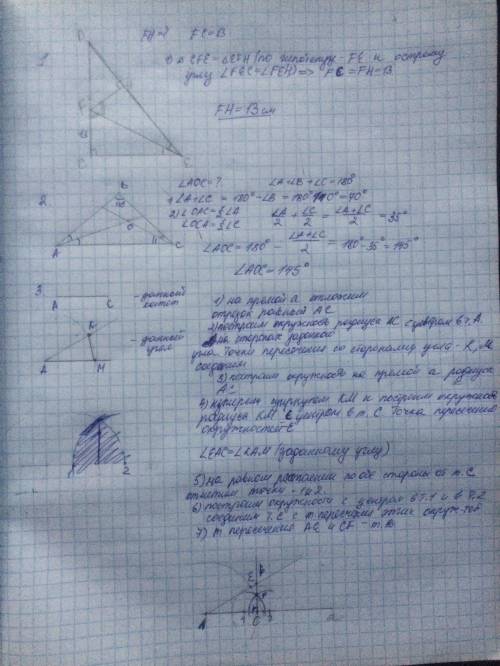 1
FH-?
FC=13
1) △CFE = △EFH (по гипотенузе - FE и острому
углу ∠FEC=∠FEH) => FC=FH=13
FH=13 см
D
F
H
13
C
E
2
∠AOC=?
∠A+∠B+∠C=180°
1) ∠A+∠C = 180°-∠B = 180°-110°=70°
2) ∠OAC=½∠A
∠OCA=½∠C
∠A/2 + ∠C/2 = (∠A+∠C)/2 = 35°
∠AOC=180° - (∠A+∠C)/2 = 180°-35°=145°
∠AOC=145°
B
O
A
C
3
A C
- данный
катет
K
- данный
угол
A M
1) на прямой a отложим
отрезок равный AC
2) построим окружность радиуса AC с центром в т. A.
на сторонах заданной
угла. Точки пересечения со сторонами угла - K, M
соединим
3) построим окружность на прямой a радиуса
4) измерим циркулем KM и построим окружность
радиуса KM с центром в т. C. Точка пересечения
окружностей - E
∠EAC=∠KAM (заданному углу)
5) на равном расстоянии по обе стороны от т. C
отметим точки - 1 и 2.
6) построим окружности с центром в т. 1 и в т. 2
соединим т. C с т. пересечения этих окруж-тей
7) т. пересечения AE и CF - т. B.
2
E
F
A
1
C
2
a